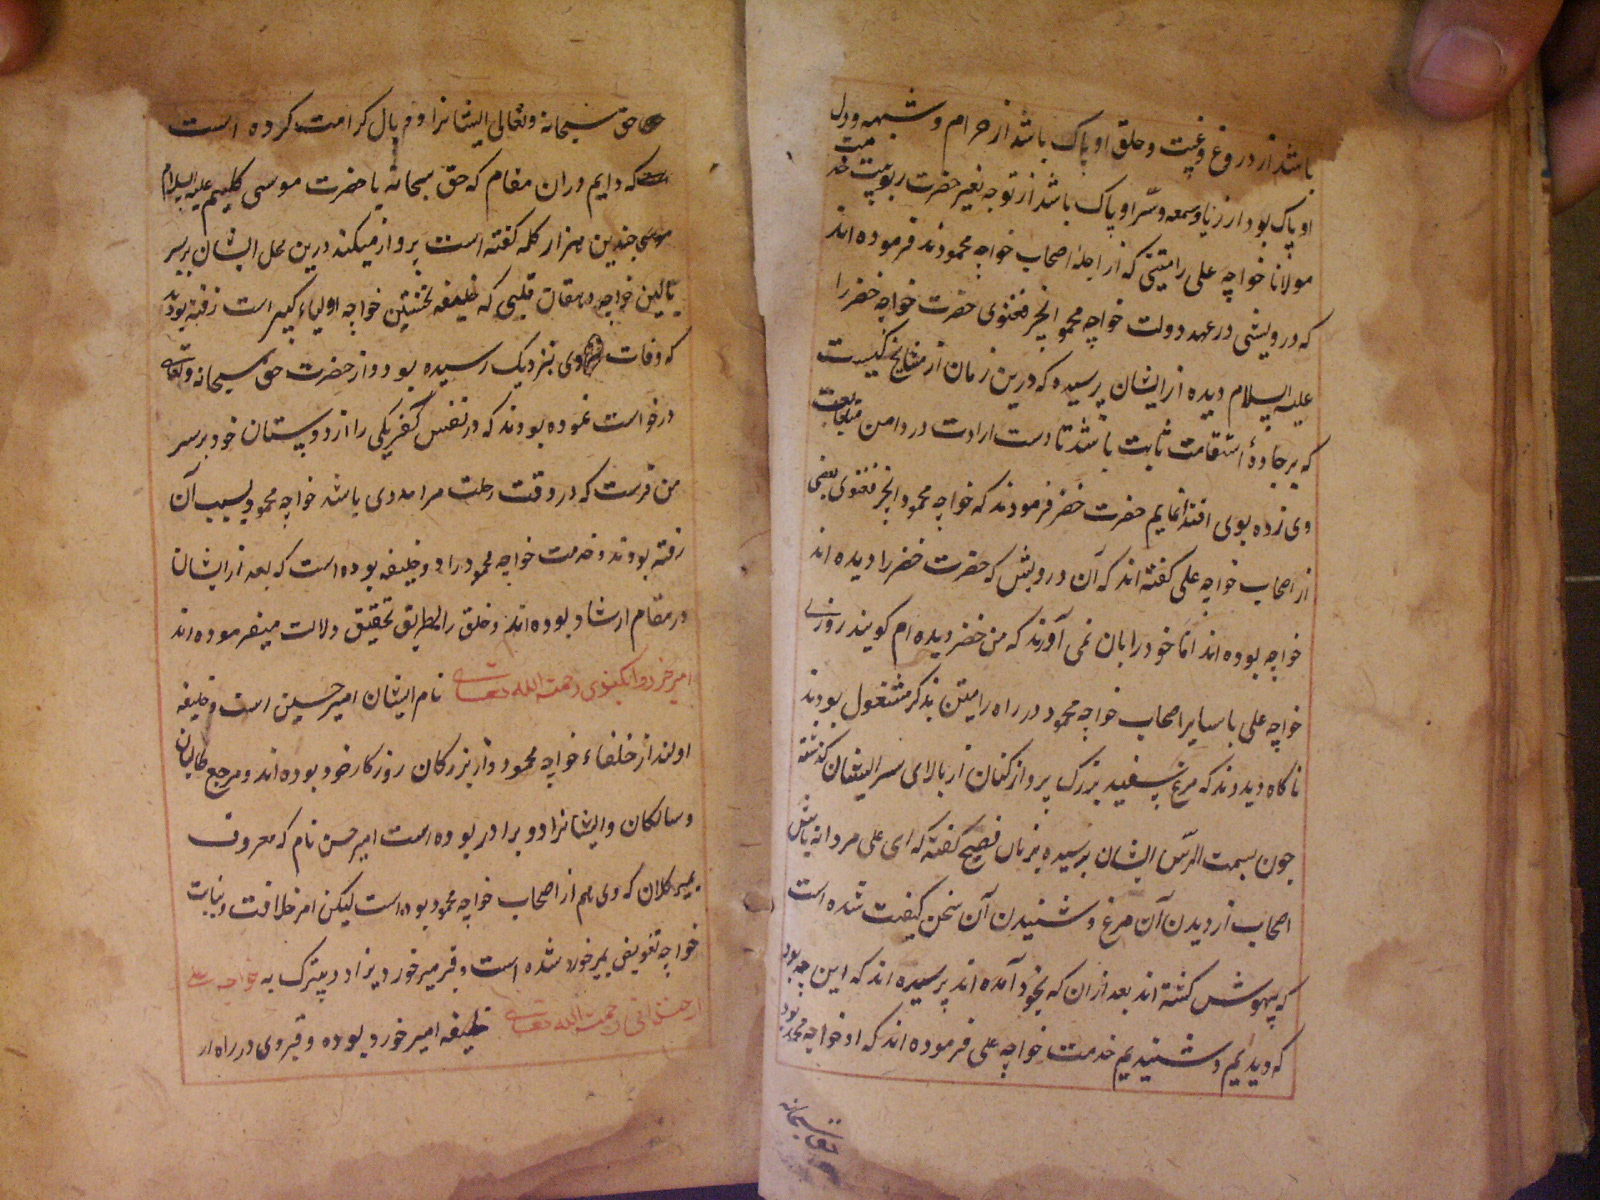 باشد از دروغ و غیبت و حلق او پاک باشد از حرام و شبهه و دل
او پاک بود از ریا و سمعه و سر او پاک باشد از توجه بغیر حضرت ربوبیت خدمت
مولانا خواجه علی رامیتنی که از اجله اصحاب خواجه محمودند فرموده اند
که درویشی در عهد دولت خواجه محمود الخیر فغنوی حضرت خواجه خضر را
علیه السلام دیده از ایشان پرسیده که درین زمان از مشایخ کیست
که بر جادهٔ استقامت ثابت باشد تا دست ارادت در دامن متابعت
وی زده بوی اقتدا نمایم حضرت خضر فرمودند که خواجه محمود انجیر فغنوی بعضی
از اصحاب خواجه علی گفته اند که آن درویش که حضرت خضر را دیده اند
خواجه بوده اند اما خود را بان نمی آورند که من خضر دیده ام گویند روزی
خواجه علی با سایر اصحاب خواجه محمود در راه رامیتن بذکر مشغول بودند
ناگاه دیدند که مرغ سفید بزرگ پرواز کنان از بالای سر ایشان گذشته
چون بسمت الرأس ایشان رسیده بزبان فصیح گفته که ای علی مردانه باش
اصحاب از دیدن آن مرغ و شنیدن آن سخن کیفیت شده است
که بیهوش گشته اند بعد ازان که بخود آمده اند پرسیده اند که این چه بود
که دیدیم و شنیدیم خدمت خواجه علی فرموده اند که او خواجه محمد بود
حق سبحانه
حق سبحانه و تعالی ایشانرا و بال کرامت کرده است
که دایم دران مقام که حق سبحانه با حضرت موسی کلیم علیه السلام
چندین هزار کلمه گفته است پرواز میکند درین محل ایشان بر سر
بالین خواجه دهقان قلتی که خلیفه نخستین خواجه اولیاء کبیر است رفته بودند
که وفات وی نزدیک رسیده بود و از حضرت حق سبحانه و تعالی
درخواست نموده بودند که در نفس یکی را از دوستان خود بر سر
من فرست که در وقت رحلت مرا مددی باشد خواجه محمود بسبب آن
رفته بودند و خدمت خواجه محمود را دو خلیفه بوده است که بعد از ایشان
در مقام ارشاد بوده اند و خلق را بطریق تحقیق دلالت میفرموده اند
امیر خرد وابکنوی رحمت الله تعالی نام ایشان امیر حسین است و خلیفه
اولند از خلفاء خواجه محمود و از بزرگان روزگار خود بوده اند و مرجع طالبان
و سالکان و ایشانرا دو برادر بوده است امیر حسن نام که معروف
بمیر کلان که وی هم از اصحاب خواجه محمود بوده است لیکن امر خلافت و نیابت
خواجه تفویض بمیر خورد شده است و قبر میر خورد به خواجه علی
رحمت الله تعالی خلیفه امیر خورد بوده و قبر وی در راه